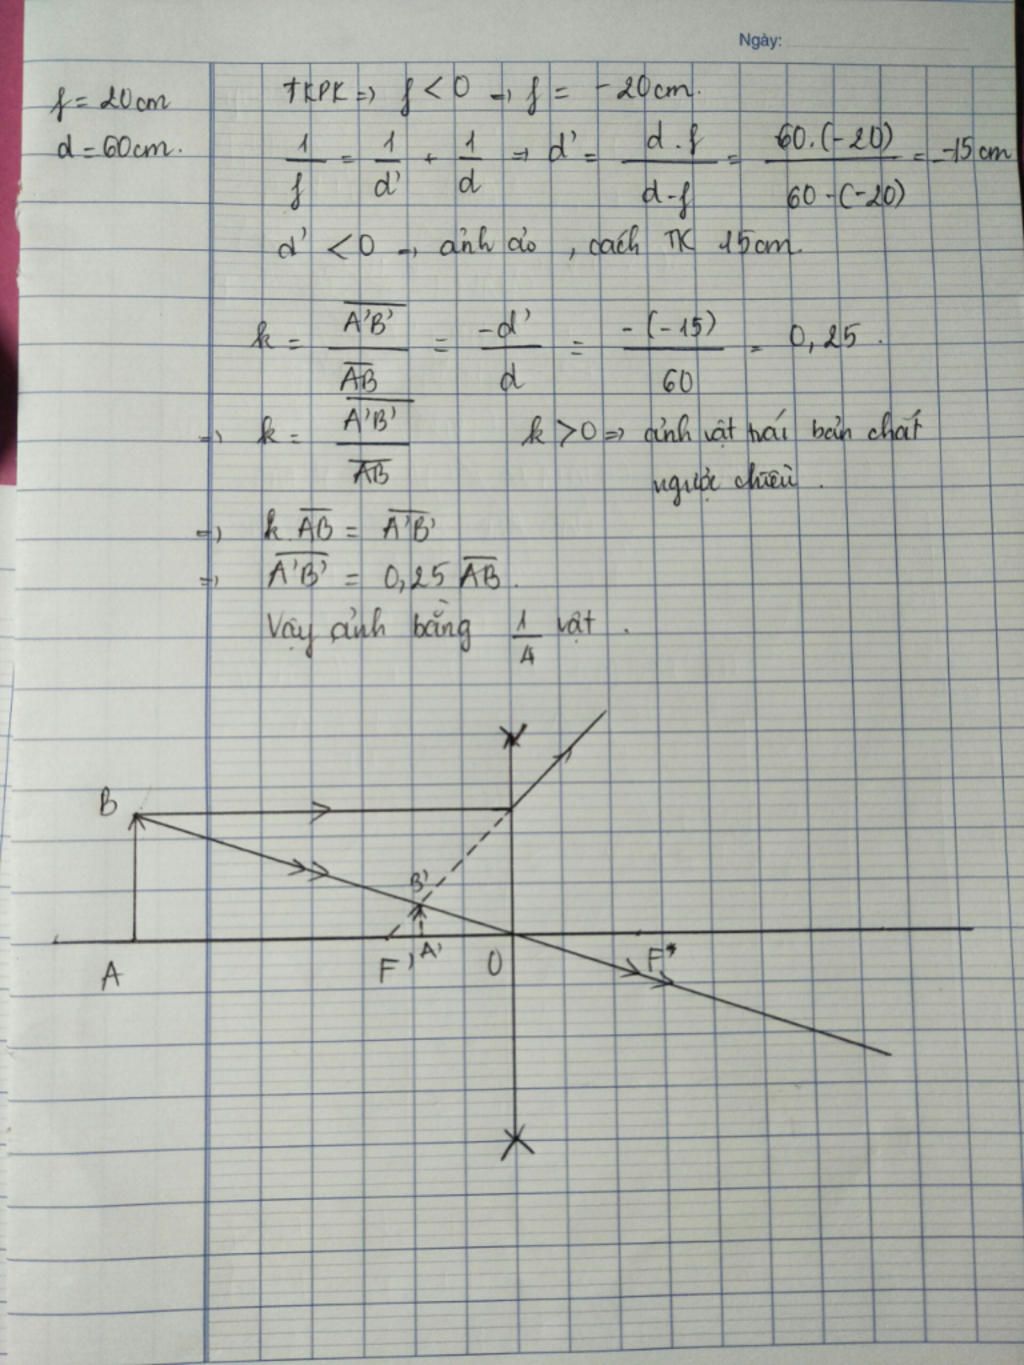 Ngày:
f = 20cm
d = 60cm.
TKPK => f < 0 → f = -20cm.
1/f = 1/d' + 1/d => d' = d.f / d-f = 60.(-20) / 60-(-20) = -15cm
d' < 0 → ảnh ảo, cách TK 15cm.
k = A'B' / AB = -d' / d = -(-15) / 60 = 0,25.
=> k = A'B' / AB   k > 0 => ảnh vật trái bản chất
ngược chiều.
=> k AB = A'B'
=> A'B' = 0,25 AB.
Vậy ảnh bằng 1/4 vật.
B
B'
A
F'
A'
O
F'